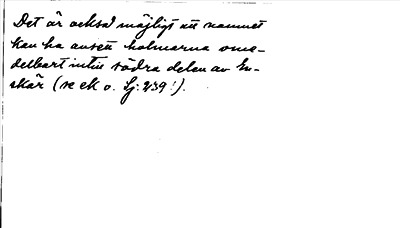 Det är också möjligt att namnet
kan ha avsett holmarna ome-
delbart intill södra delen av En-
skär (se ek o. Lj: 239!).